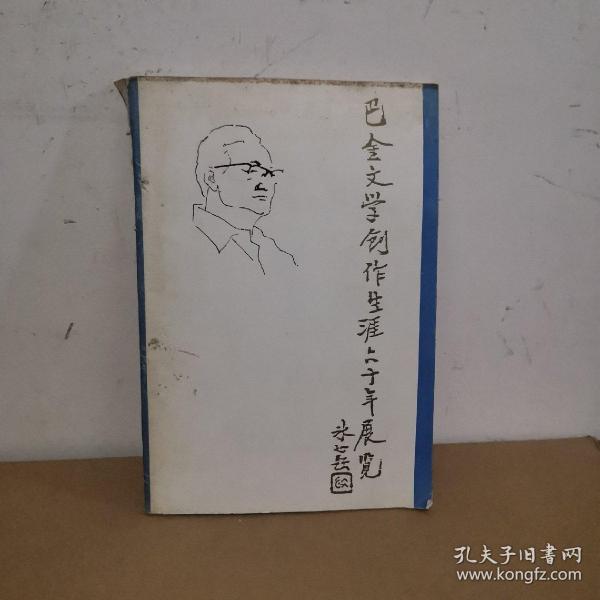 巴金文学创作生涯六十年展览
冰心题
孔夫子旧书网
www.kongfz.com